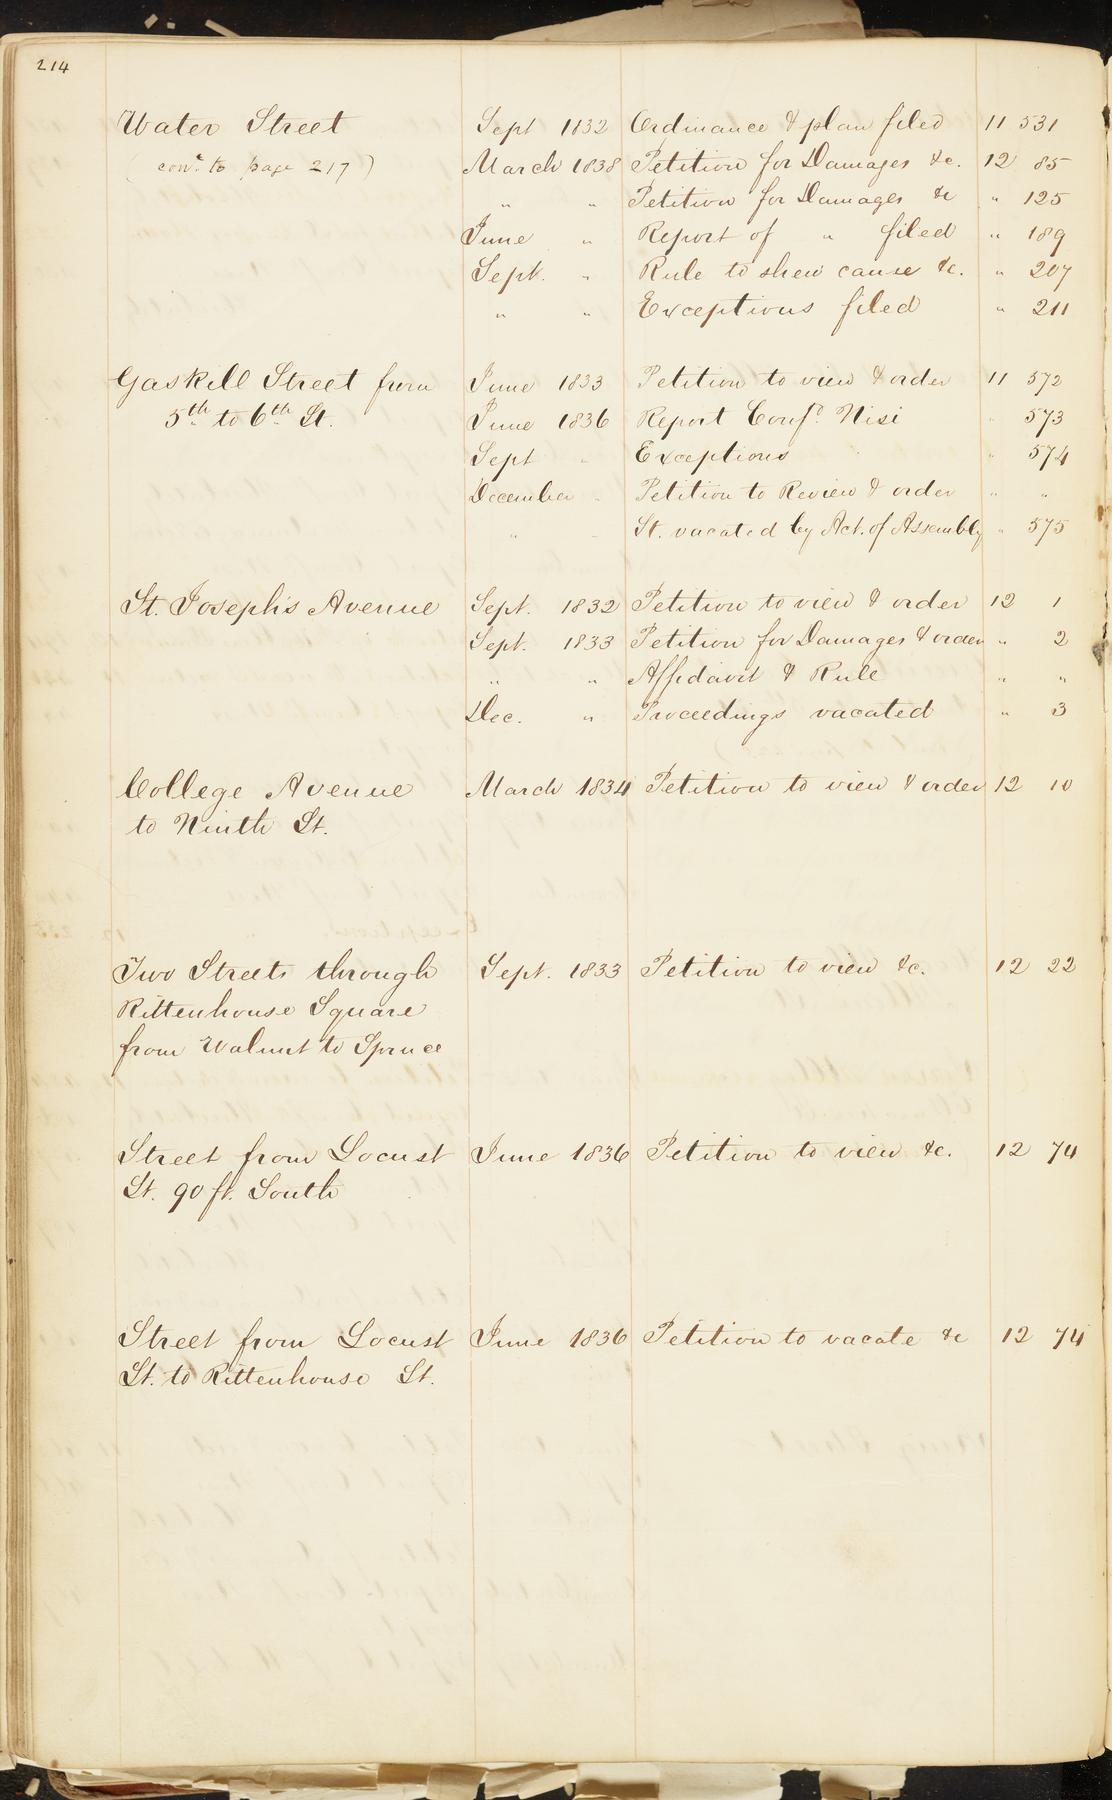 214
Water Street Sept 1132 Ordinance & plan filed 11 531
( con.d to page 217 ) March 1838 Petition for Damages &c. 12 85
" " Petition for Damages &c " 125
June " Report of " filed " 189
Sept. " Rule to shew cause &c. " 207
" " Exceptions filed " 211
Gaskill Street from June 1833 Petition to view & order 11 572
5th to 6th St. June 1836 Report Conf.d Nisi " 573
Sept " Exceptions " 574
December " Petition to Review & order " "
" " St. vacated by Act. of Assembly " 575
St. Joseph's Avenue Sept. 1832 Petition to view & order 12 1
Sept. 1833 Petition for Damages & order " 2
" " Affidavit & Rule " "
Dec. " Proceedings vacated " 3
College Avenue March 1834 Petition to view & order 12 10
to Ninth St.
Two Streets through Sept. 1833 Petition to view &c. 12 22
Rittenhouse Square
from Walnut to Spruce
Street from Locust June 1836 Petition to view &c. 12 74
St. 90 ft. South
Street from Locust June 1836 Petition to vacate &c 12 74
St. to Rittenhouse St.